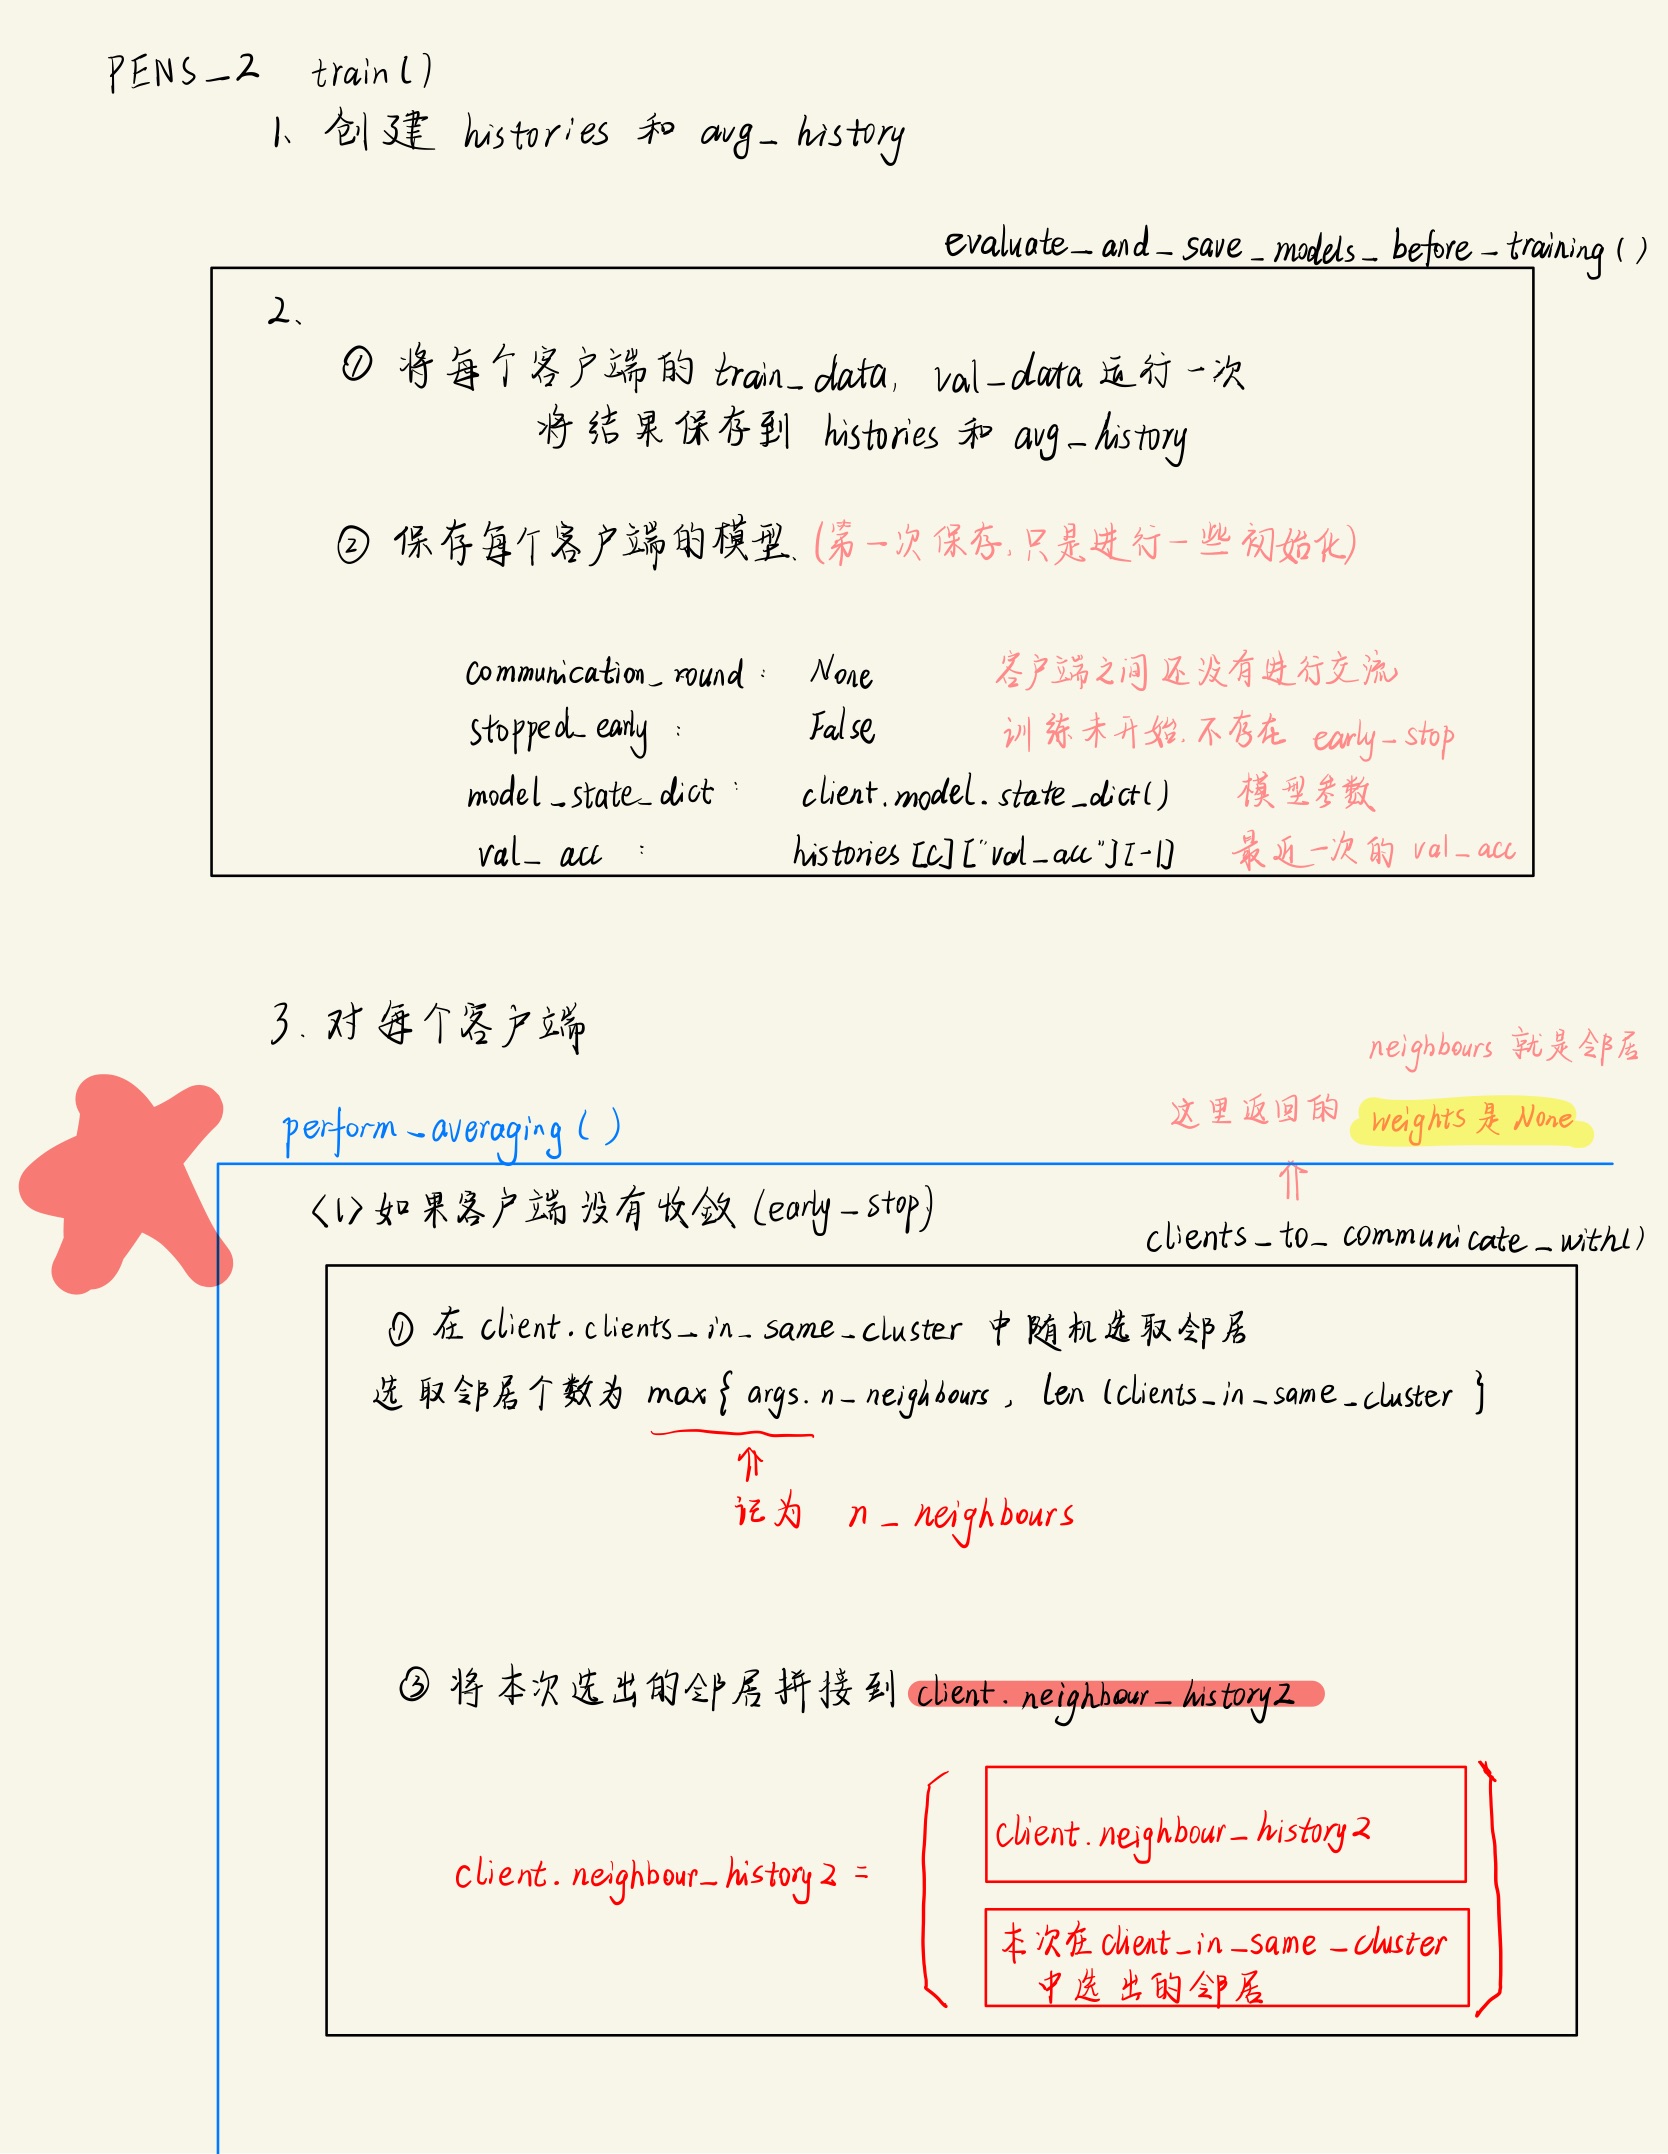 PENS_2 train()
1、创建 histories 和 avg_history
evaluate_and_save_models_before_training()
2、
① 将每个客户端的 train_data, val_data 运行一次
将结果保存到 histories 和 avg_history
② 保存每个客户端的模型. (第一次保存,只是进行一些初始化)
communication_round : None 客户端之间还没有进行交流
stopped_early : False 训练未开始.不存在 early_stop
model_state_dict : client.model.state_dict() 模型参数
val_acc : histories[c]["val_acc"][-1] 最近一次的 val_acc
3. 对每个客户端
neighbours 就是邻居
这里返回的 weights 是 None
perform_averaging()
⇑
<1> 如果客户端没有收敛 (early_stop)
clients_to_communicate_with()
① 在 client.clients_in_same_cluster 中随机选取邻居
选取邻居个数为 max{ args.n_neighbours, len (clients_in_same_cluster }
⇑
记为 n_neighbours
③ 将本次选出的邻居拼接到 client.neighbour_history2
client.neighbour_history2
client.neighbour_history2 =
本次在client_in_same_cluster
中选出的邻居